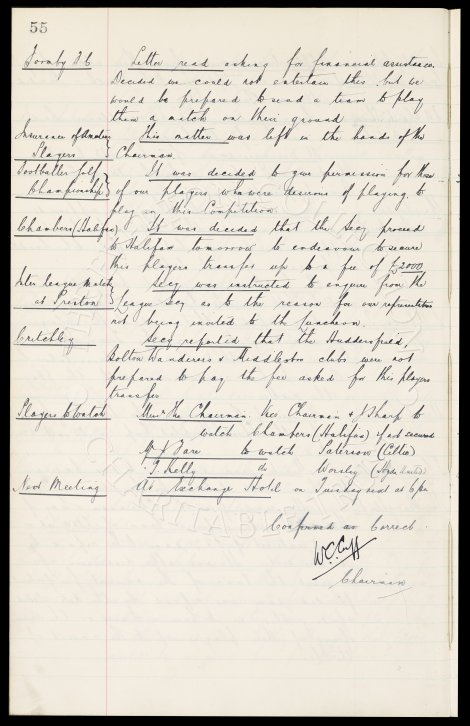 55
Formby F.C
Letter read asking for financial assistance.
Decided we could not entertain this but we
would be prepared to send a team to play
them a match on their ground
Insurance of Amateur Players
This matter was left in the hands of the
Chairman
Footballer Golf Championship
It was decided to give permission for those
of our players who were desirous of playing to
play in this Competition
Chambers (Halifax)
It was decided that the Secy proceed
to Halifax tomorrow to endeavour to secure
this players transfer up to a fee of £2000
Inter League Match at Preston
Secy was instructed to enquire from the
League Secy as to the reason for our representatives
not being invited to the luncheon.
Critchley
Secy reported that the Huddersfield,
Bolton Wanderers & Middlesbro clubs were not
prepared to pay the fee asked for this players
transfer
Players to Watch
The Chairman. Vice Chairman & J Sharp to
watch Chambers (Halifax) if not secured
Mr to watch Paterson (Celtic)
T. Kelly do Worsley
Next Meeting
At Exchange Hotel on Tuesday next at 6pm
Confirmed as Correct.
W.C. Cuff
Chairman